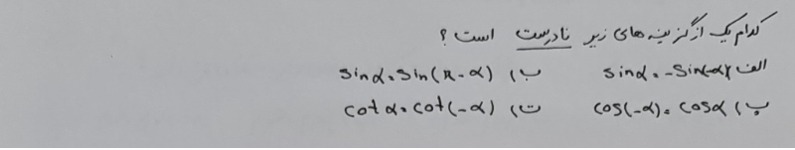 کدام یک از گزینه های زیر نادرست است ؟
الف) sinα = -sin(-α)   ب) sinα = sin(π-α)
پ) cos(-α) = cosα   ت) cotα = cot(-α)